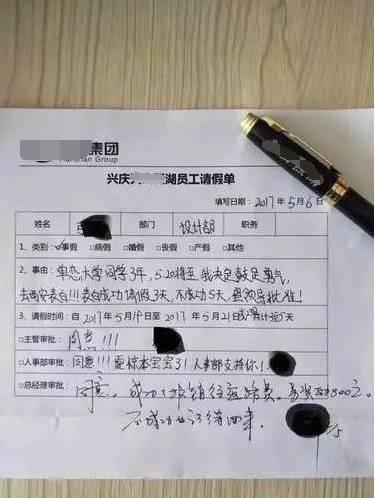 集团
Group
兴庆 湖员工请假单
填写日期：2017年5月6日
姓名 部门 设计部 职务
1、类别：☑事假 □病假 □婚假 □丧假 □产假 □其他
2、事由：单恋大学同学3年，5.20将至 我决定鼓足勇气，
去西安表白!!!表白成功请假3天，不成功5天，望领导批准！
3、请假时间：自2017年5月19日至 2017年5月21日 共计 天
□主管审批：同意!!!
□人事部审批：同意!!! 人事部支持你!
□总经理审批：同意。成功了报销往返路费。 800元。
不成功也记得回来。